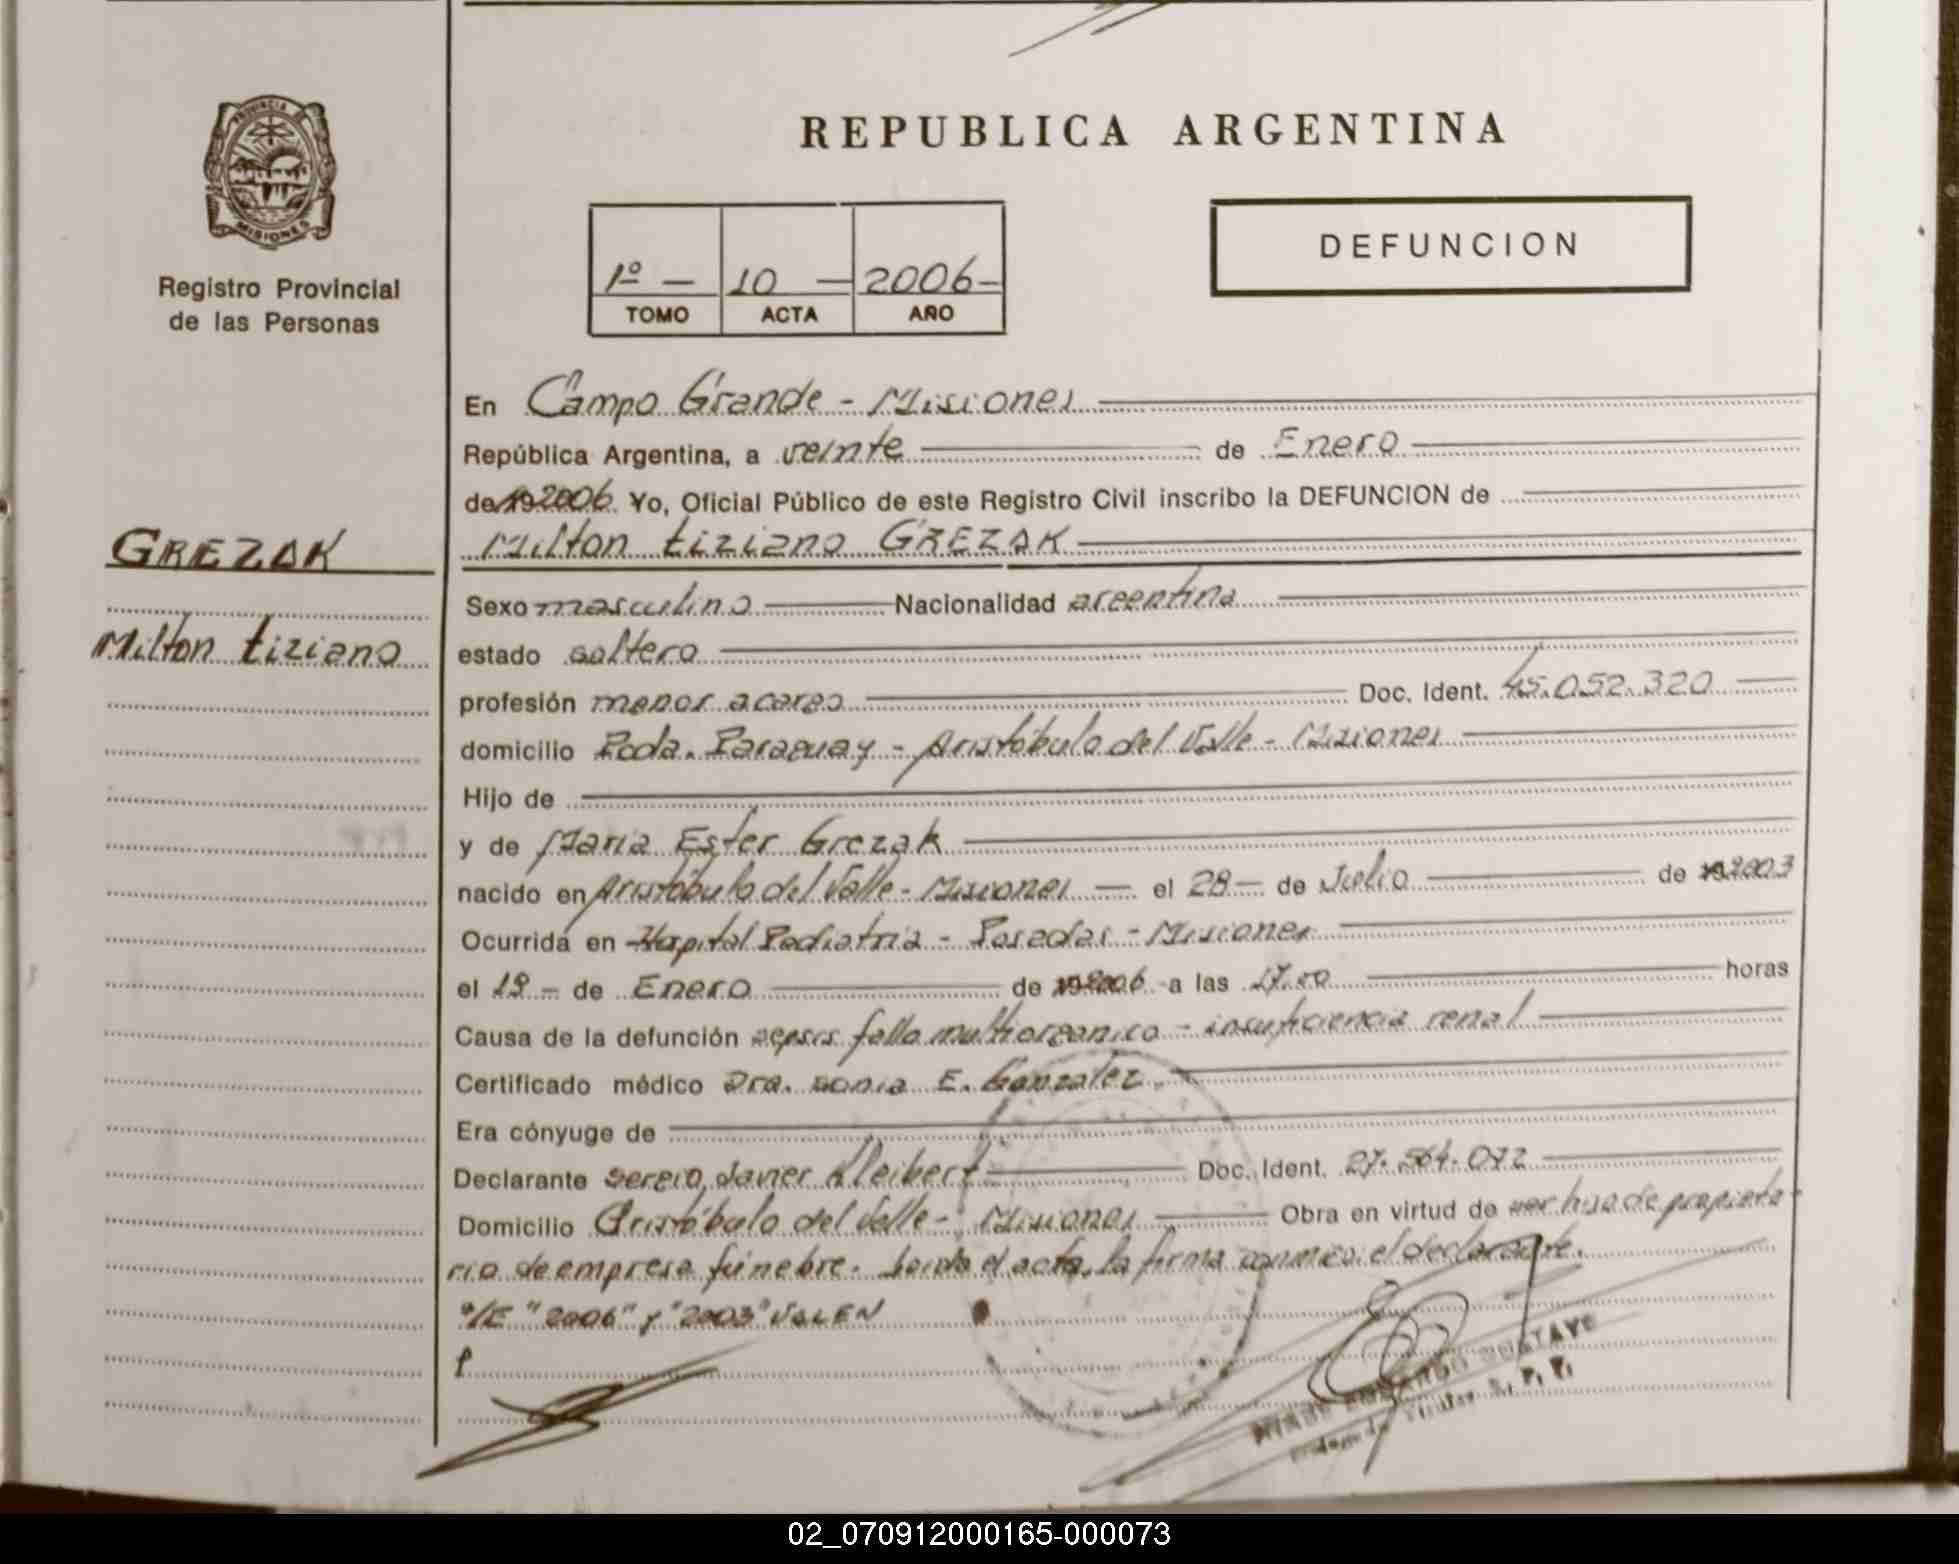 PROVINCIA DE
MISIONES
Registro Provincial
de las Personas
REPUBLICA ARGENTINA
DEFUNCION
1º — 10 — 2006-
TOMO ACTA AÑO
En Campo Grande - Misiones
República Argentina, a veinte de Enero
de 19 2006. Yo, Oficial Público de este Registro Civil inscribo la DEFUNCION de
GREZAK
Milton tiziano GREZAK
Sexo masculino Nacionalidad argentina
Milton tiziano
estado soltero
profesión menor a cargo Doc. Ident. 45.052.320
domicilio Pcda. Paraguay - Aristóbulo del Valle - Misiones
Hijo de
y de Maria Ester Grezak
nacido en Aristóbulo del Valle - Misiones — el 28 — de Julio de 19 2003
Ocurrida en Hospital Pediatria - Posadas - Misiones
el 19 - de Enero de 19 2006 a las 17.00 horas
Causa de la defunción sepsis fallo multiorganico - insuficiencia renal
Certificado médico Dra. Sonia E. Gonzalez.
Era cónyuge de
Declarante Sergio Javier Kleibert Doc. Ident. 27.564.072
Domicilio Aristóbulo del Valle - Misiones Obra en virtud de ser hijo de propieta-
rio de empresa fúnebre. Leida el acta, la firma conmigo el declarante.
S/E "2006" y "2003" VALEN
EDUARDO GUSTAVO
R. P. P.
02_070912000165-000073